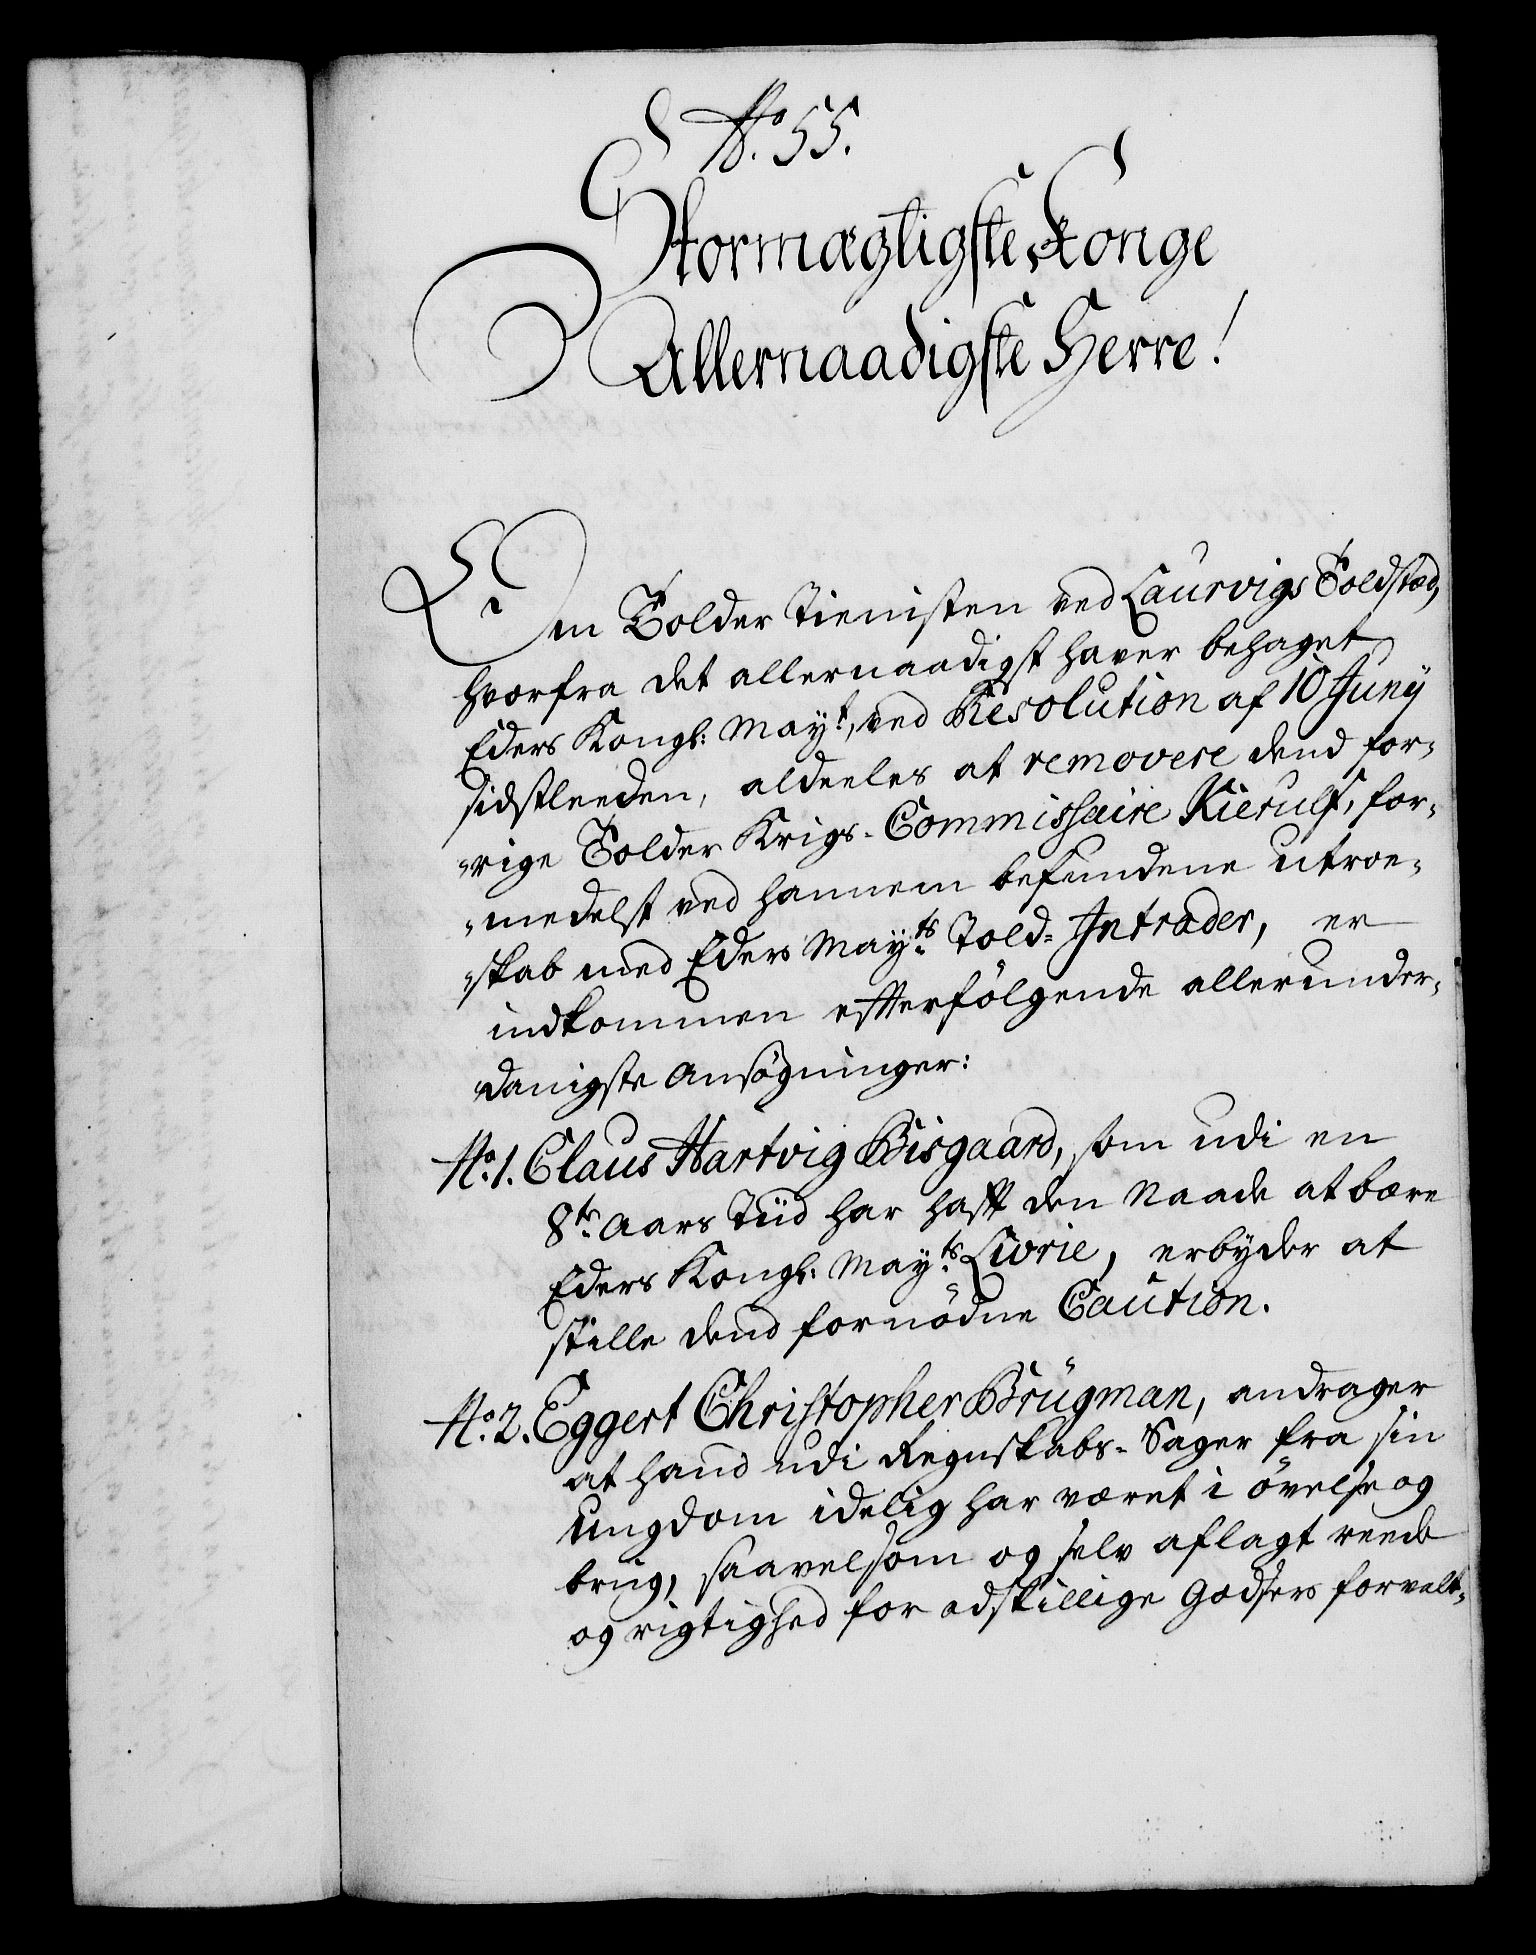 No. 55.
Stormægtigste Konge
Allernaadigste Herre!
Om Tolder Tienisten ved Laurvigs Toldsted,
hvorfra det allernaadigst haver behaget
Eders Kongl: Mayt, ved Resolution af 10 Juny
sidstleeden, aldeeles at removere dend for-
-rige Tolder Krigs-Commissaire Kierulf, for-
-medelst ved hannem befundene utroe-
-skab med Eders Mayts Told-Intrader, er
indkommen efterfölgende allerunder-
danigste Ansögninger:
No. 1. Claus Hartvig Bisgaard, som udi en
8te Aars Tiid har hafft den Naade at bære
Eders Kongl: Mayts Livrie, erbyder at
stille dend fornödne Caution.
No. 2. Eggert Christopher Brügman, andrager
at hand udi Regnskabs-Sager fra sin
Ungdom idelig har været i övelse og
brug, saavelsom og selv aflagt reede
og rigtighed for adskillige Godsers forvalt-